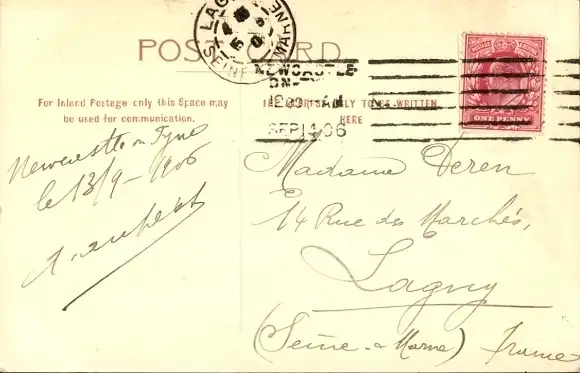 POST CARD
LAGNY
SEINE MARNE
NEWCASTLE-
ON-
SEP 14 06
POSTAGE
ONE PENNY
For Inland Postage only this Space may
be used for communication.
TO BE WRITTEN
HERE
Newcastle on Tyne
le 13/9-1906
Madame Deren
14 Rue des Marchés,
Lagny
(Seine-&-Marne) France